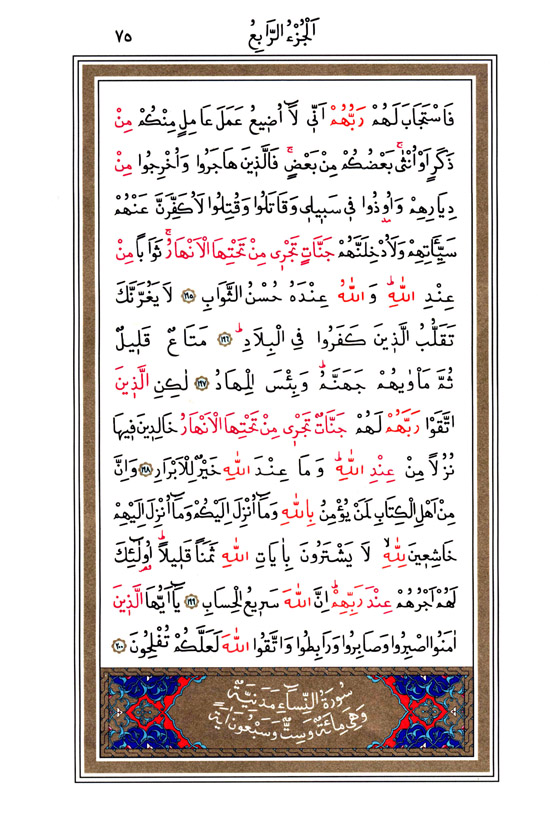 اَلْجُزْءُ الرَّابِعُ
٧٥
فَاسْتَجَابَ لَهُمْ رَبُّهُمْ اَنّ۪ي لَٓا اُض۪يعُ عَمَلَ عَامِلٍ مِنْكُمْ مِنْ
ذَكَرٍ اَوْ اُنْثٰىۚ بَعْضُكُمْ مِنْ بَعْضٍۚ فَالَّذ۪ينَ هَاجَرُوا وَاُخْرِجُوا مِنْ
دِيَارِهِمْ وَاُو۫ذُوا ف۪ي سَب۪يل۪ي وَقَاتَلُوا وَقُتِلُوا لَاُكَفِّرَنَّ عَنْهُمْ
سَيِّـَٔاتِهِمْ وَلَاُدْخِلَنَّهُمْ جَنَّاتٍ تَجْر۪ي مِنْ تَحْتِهَا الْاَنْهَارُۚ ثَوَابًا مِنْ
عِنْدِ اللّٰهِۜ وَاللّٰهُ عِنْدَهُ حُسْنُ الثَّوَابِ ﴿١٩٥﴾ لَا يَغُرَّنَّكَ
تَقَلُّبُ الَّذ۪ينَ كَفَرُوا فِي الْبِلَادِۜ ﴿١٩٦﴾ مَتَاعٌ قَل۪يلٌ
ثُمَّ مَأْوٰيهُمْ جَهَنَّمُۜ وَبِئْسَ الْمِهَادُ ﴿١٩٧﴾ لٰكِنِ الَّذ۪ينَ
اتَّقَوْا رَبَّهُمْ لَهُمْ جَنَّاتٌ تَجْر۪ي مِنْ تَحْتِهَا الْاَنْهَارُ خَالِد۪ينَ ف۪يهَا
نُزُلًا مِنْ عِنْدِ اللّٰهِۜ وَمَا عِنْدَ اللّٰهِ خَيْرٌ لِلْاَبْرَارِ ﴿١٩٨﴾ وَاِنَّ
مِنْ اَهْلِ الْكِتَابِ لَمَنْ يُؤْمِنُ بِاللّٰهِ وَمَٓا اُنْزِلَ اِلَيْكُمْ وَمَٓا اُنْزِلَ اِلَيْهِمْ
خَاشِع۪ينَ لِلّٰهِۙ لَا يَشْتَرُونَ بِاٰيَاتِ اللّٰهِ ثَمَنًا قَل۪يلًاۜ اُو۬لٰٓئِكَ
لَهُمْ اَجْرُهُمْ عِنْدَ رَبِّهِمْۜ اِنَّ اللّٰهَ سَر۪يعُ الْحِسَابِ ﴿١٩٩﴾ يَٓا اَيُّهَا الَّذ۪ينَ
اٰمَنُوا اصْبِرُوا وَصَابِرُوا وَرَابِطُوا وَاتَّقُوا اللّٰهَ لَعَلَّكُمْ تُفْلِحُونَ ﴿٢٠٠﴾
سُورَةُ النِّسَٓاءِ مَدَنِيَّةٌ
وَهِيَ مِائَةٌ وَسِتٌّ وَسَبْعُونَ اٰيَةً